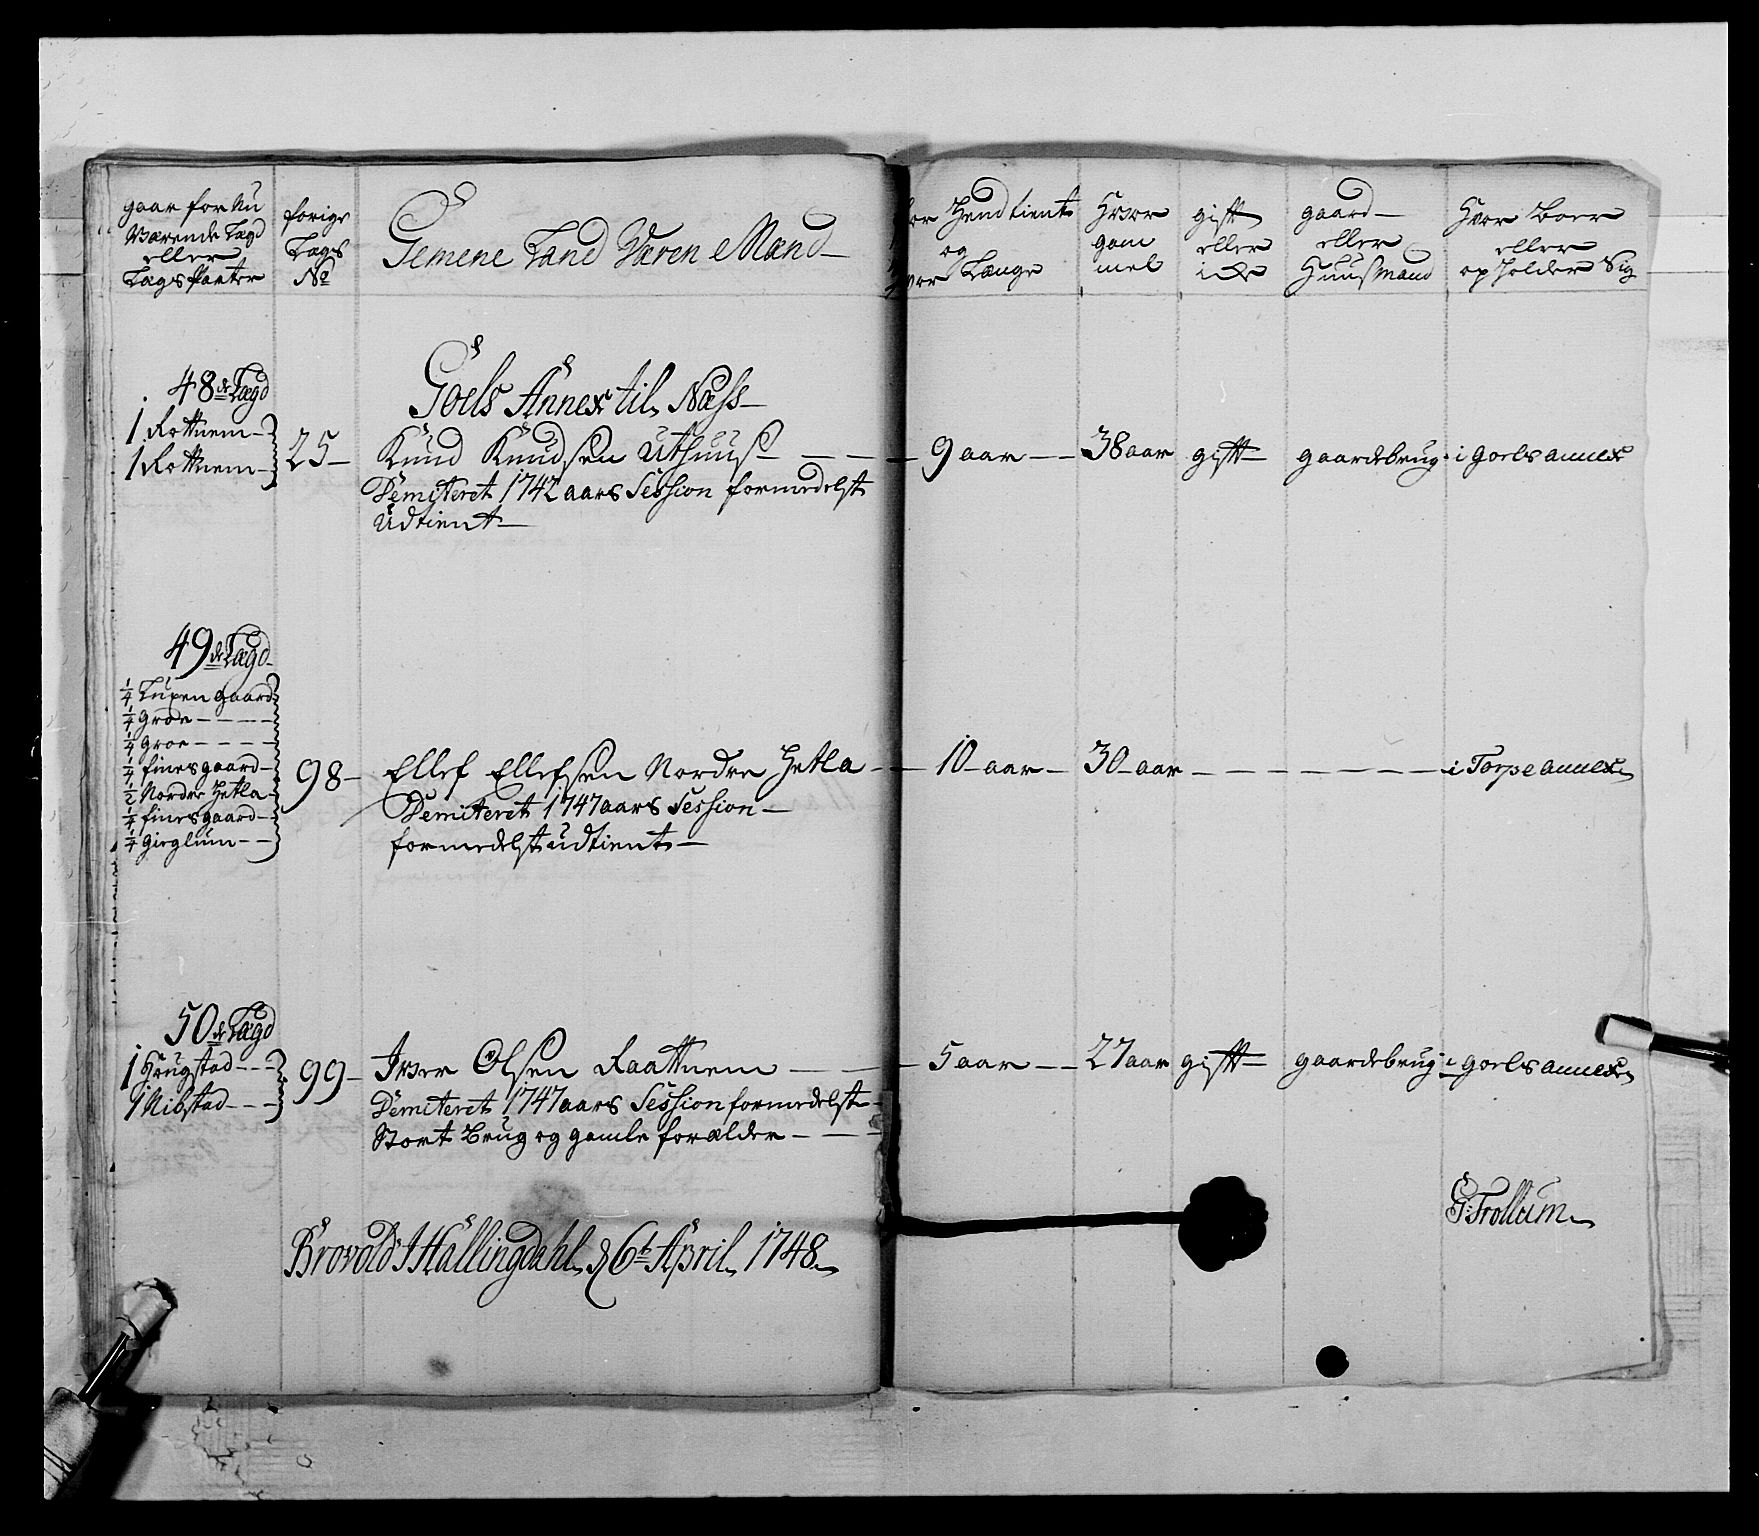 gaar for Nu
Værende Lægd
eller
Lægs Parter
forige
Lægs
No
Gemene Land Væren Mænd
Hend tient
og
Længe
Hvor
gam
mel
gift
eller
gaard
eller
Huusmand
Hvor Boer
eller
opholder Sig
48de Lægd
1 Rottnem
1 Rottnem
25
Goels Annex til Næss
Knud Knudsen Uthuus
Demiteret 1742 aars Session formedelst
Udtient
9 aar
38 aar
gift
gaardebrug
i Goels annex
49de Lægd
1/4 gaard
1/4 Groe
1/4 Groe
1/4 finesgaard
1/2 Nordre Hetla
1/4 finesgaard
1/4 Girglum
98
Ellef Ellefsen Nordre Hetla
Demiteret 1747 aars Session
formedelst udtient
10 aar
30 aar
i Torpe annex
50de Lægd
1 Haugstad
1 Nibstad
99
Iver Olsen Raattnem
Demiteret 1747 aars Session formedelst
Stort Brug og gamle forælder
5 aar
27 aar
gift
gaardebrug
i Goels annex
Brovold I Hallingdahl d 6te April 1748
G: Trollum